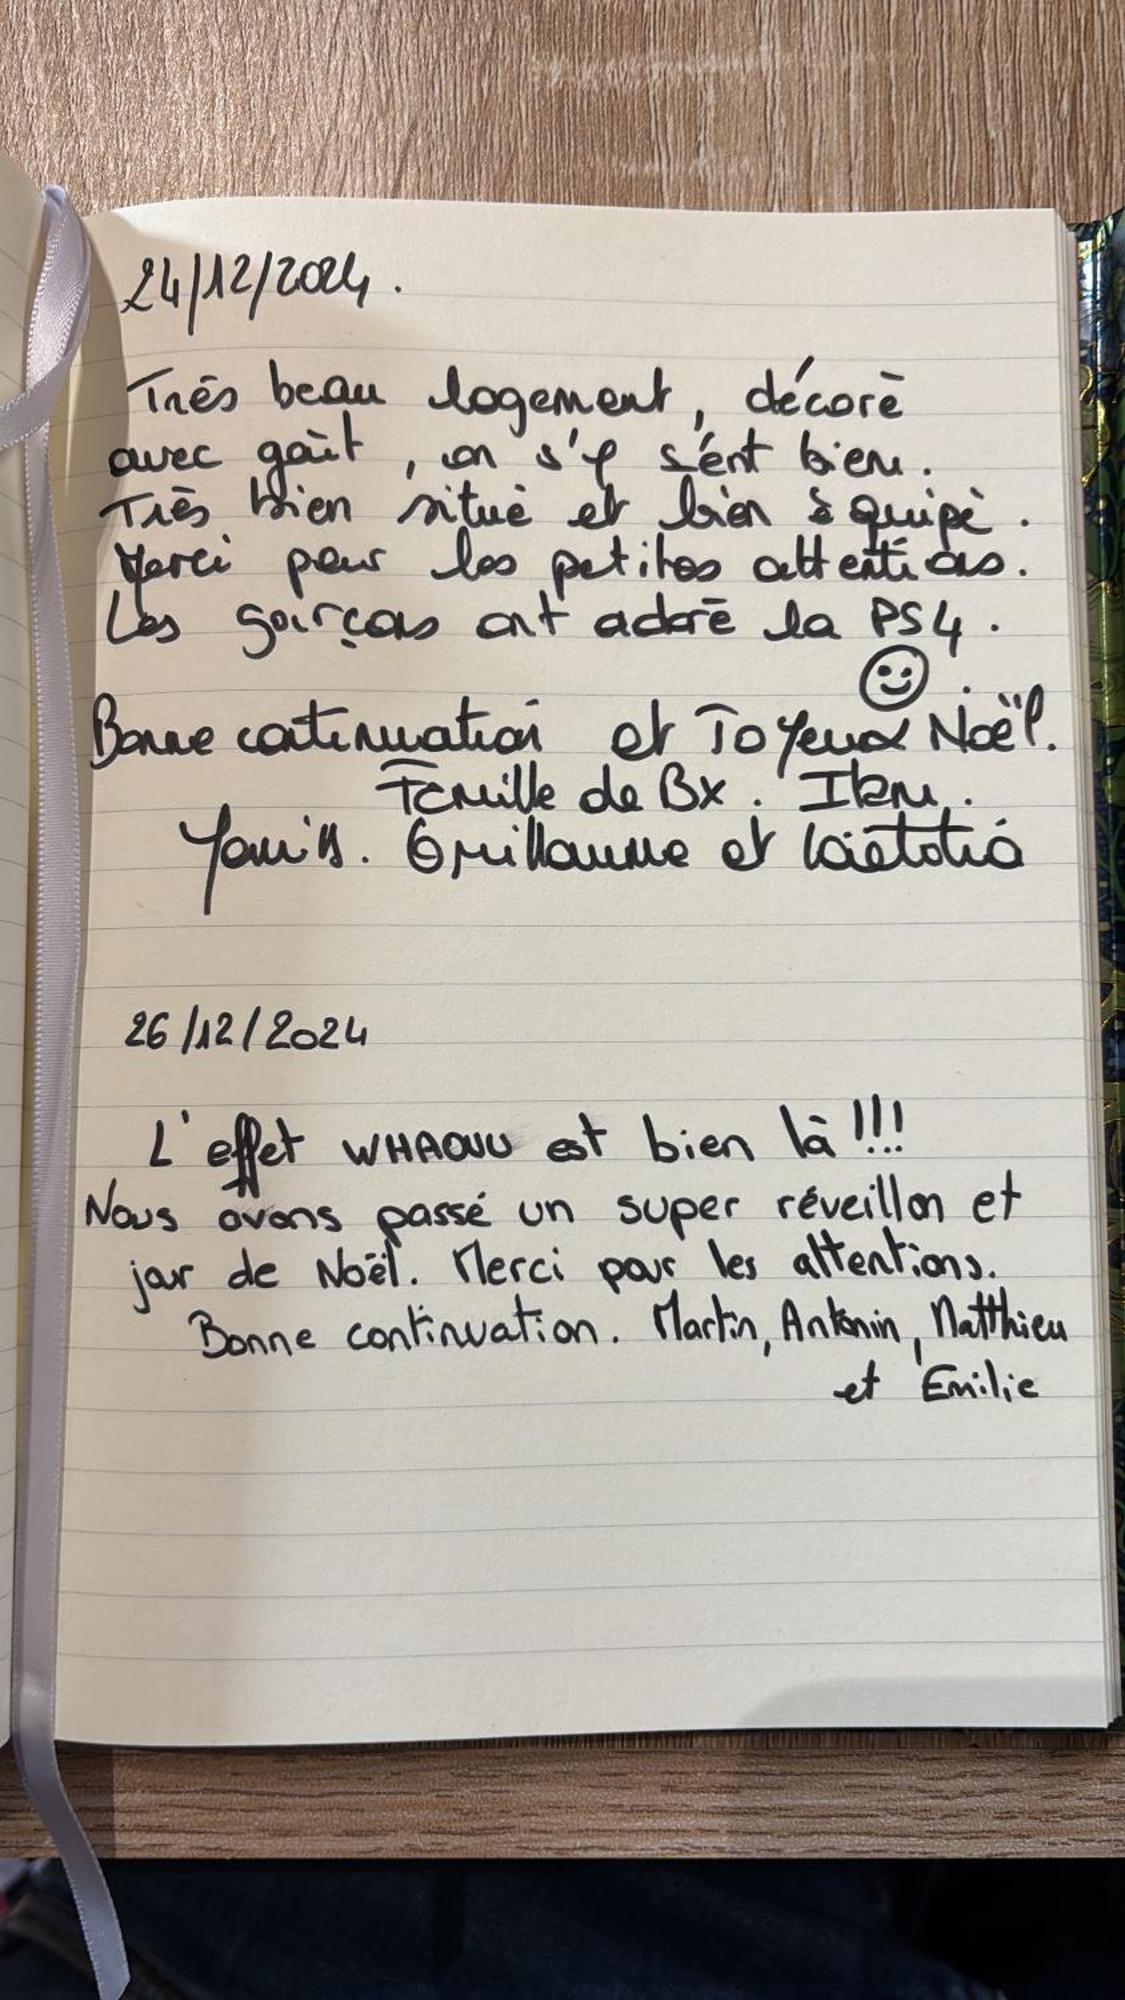 24/12/2024.
Très beau logement, décoré
avec goût, on s'y sent bien.
Très bien situé et bien équipé.
Merci pour les petites attentions.
Les garçons ont adoré la PS4.
Bonne continuation et Joyeux Noël.
Famille de Bx.
Yanis. Guillaume et Laetitia
26/12/2024
L'effet WHAOUU est bien là !!!
Nous avons passé un super réveillon et
jour de Noël. Merci pour les attentions.
Bonne continuation. Martin, Antonin, Matthieu
et Emilie